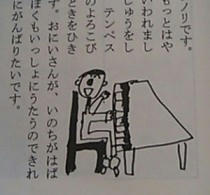 ノリです。
もっとはや
いわれまし
しゅうをし
テンペス
のよろこび
ときをひき
す。おにいさんが、いのちがはば
ぼくもいっしょにうたうのできれ
にがんばりたいです。